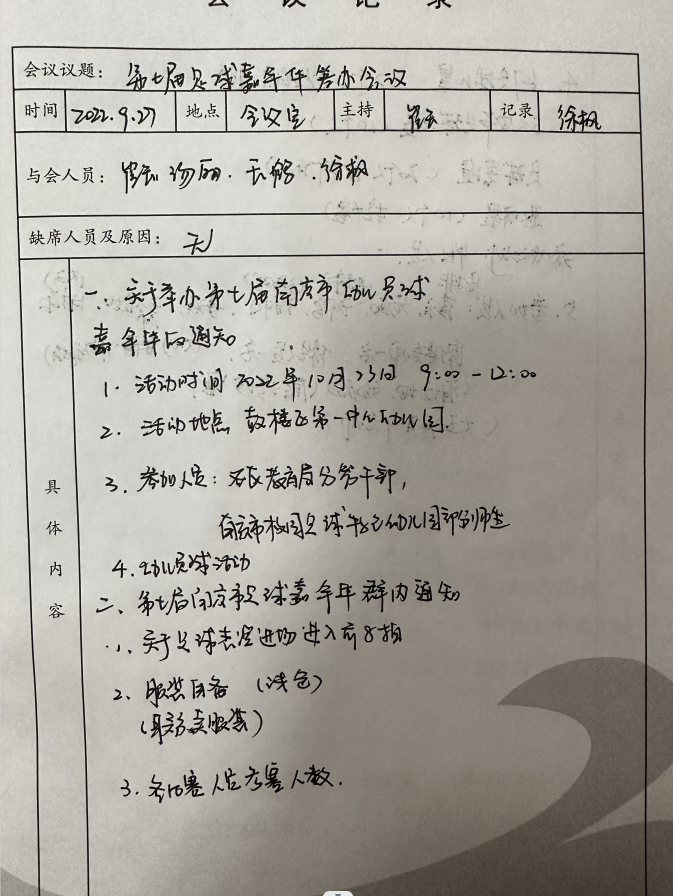 会议记录
会议议题：第七届足球嘉年华筹办会议
时间 2022.9.27 地点 会议室 主持 崔 记录 徐枫
与会人员：崔 汤丽、王鹤、徐枫
缺席人员及原因：无
具体内容
一、关于举办第七届南京市幼儿足球
嘉年华的通知
1. 活动时间 2022年10月23日 9:00-12:00
2. 活动地点 鼓楼区第一中心幼儿园.
3. 参加人员：各区教育局分管干部,
南京市校园足球特色幼儿园部分师生
4. 幼儿足球活动
二、第七届南京市足球嘉年华群内通知
1、关于足球表演进场进入
2、服装自备（浅色）
服装）
3. 参赛人数.